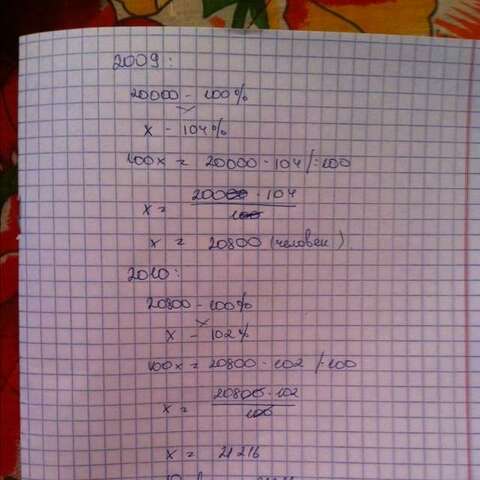 2009:
20000 - 100%
x - 104%
100x = 20000 · 104 /:100
x = 20000 · 104 / 100
x = 20800 (человек)
2010:
20800 - 100%
x - 102%
100x = 20800 · 102 /:100
x = 20800 · 102 / 100
x = 21216